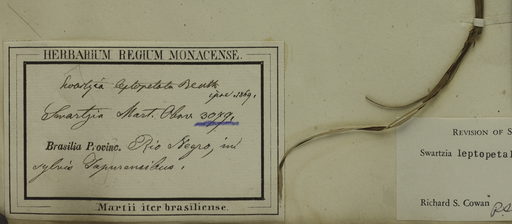 HERBARIUM REGIUM MONACENSE.
Swartzia leptopetala Benth
ipse 1869.
Swartzia Mart. Obss 3079.
Brasilia Provinc. Rio Negro, in
sylvis Japurensibus.
Martii iter brasiliense.
REVISION OF S
Swartzia leptopetal
Richard S. Cowan